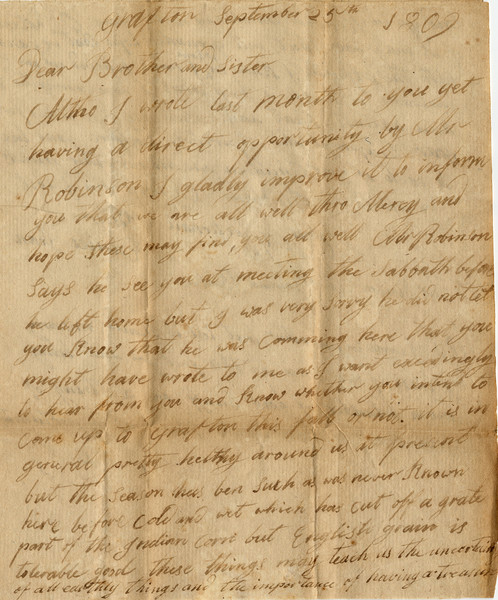 Grafton September 25th 1809
Dear Brother and Sister
Altho I wrote last month to you yet
having a direct opportunity by Mr
Robinson I gladly improve it to inform
you that we are all well thro Mercy and
hope these may find you all well Mr Robinson
says he see you at meeting the Sabbath before
he left home but I was very sorry he did not let
you Know that he was comming here that you
might have wrote to me as I want exceedingly
to hear from you and Know whether you intent to
come up to Grafton this fall or not. it is in
general pretty helthy around us at present
but the season has ben such as was never Known
here before Cold and wet which has cut of a grate
part of the Indian Corn but English grain is
tolerable good these things may teach us the uncertain
of all earthly things and the importance of having a treasure